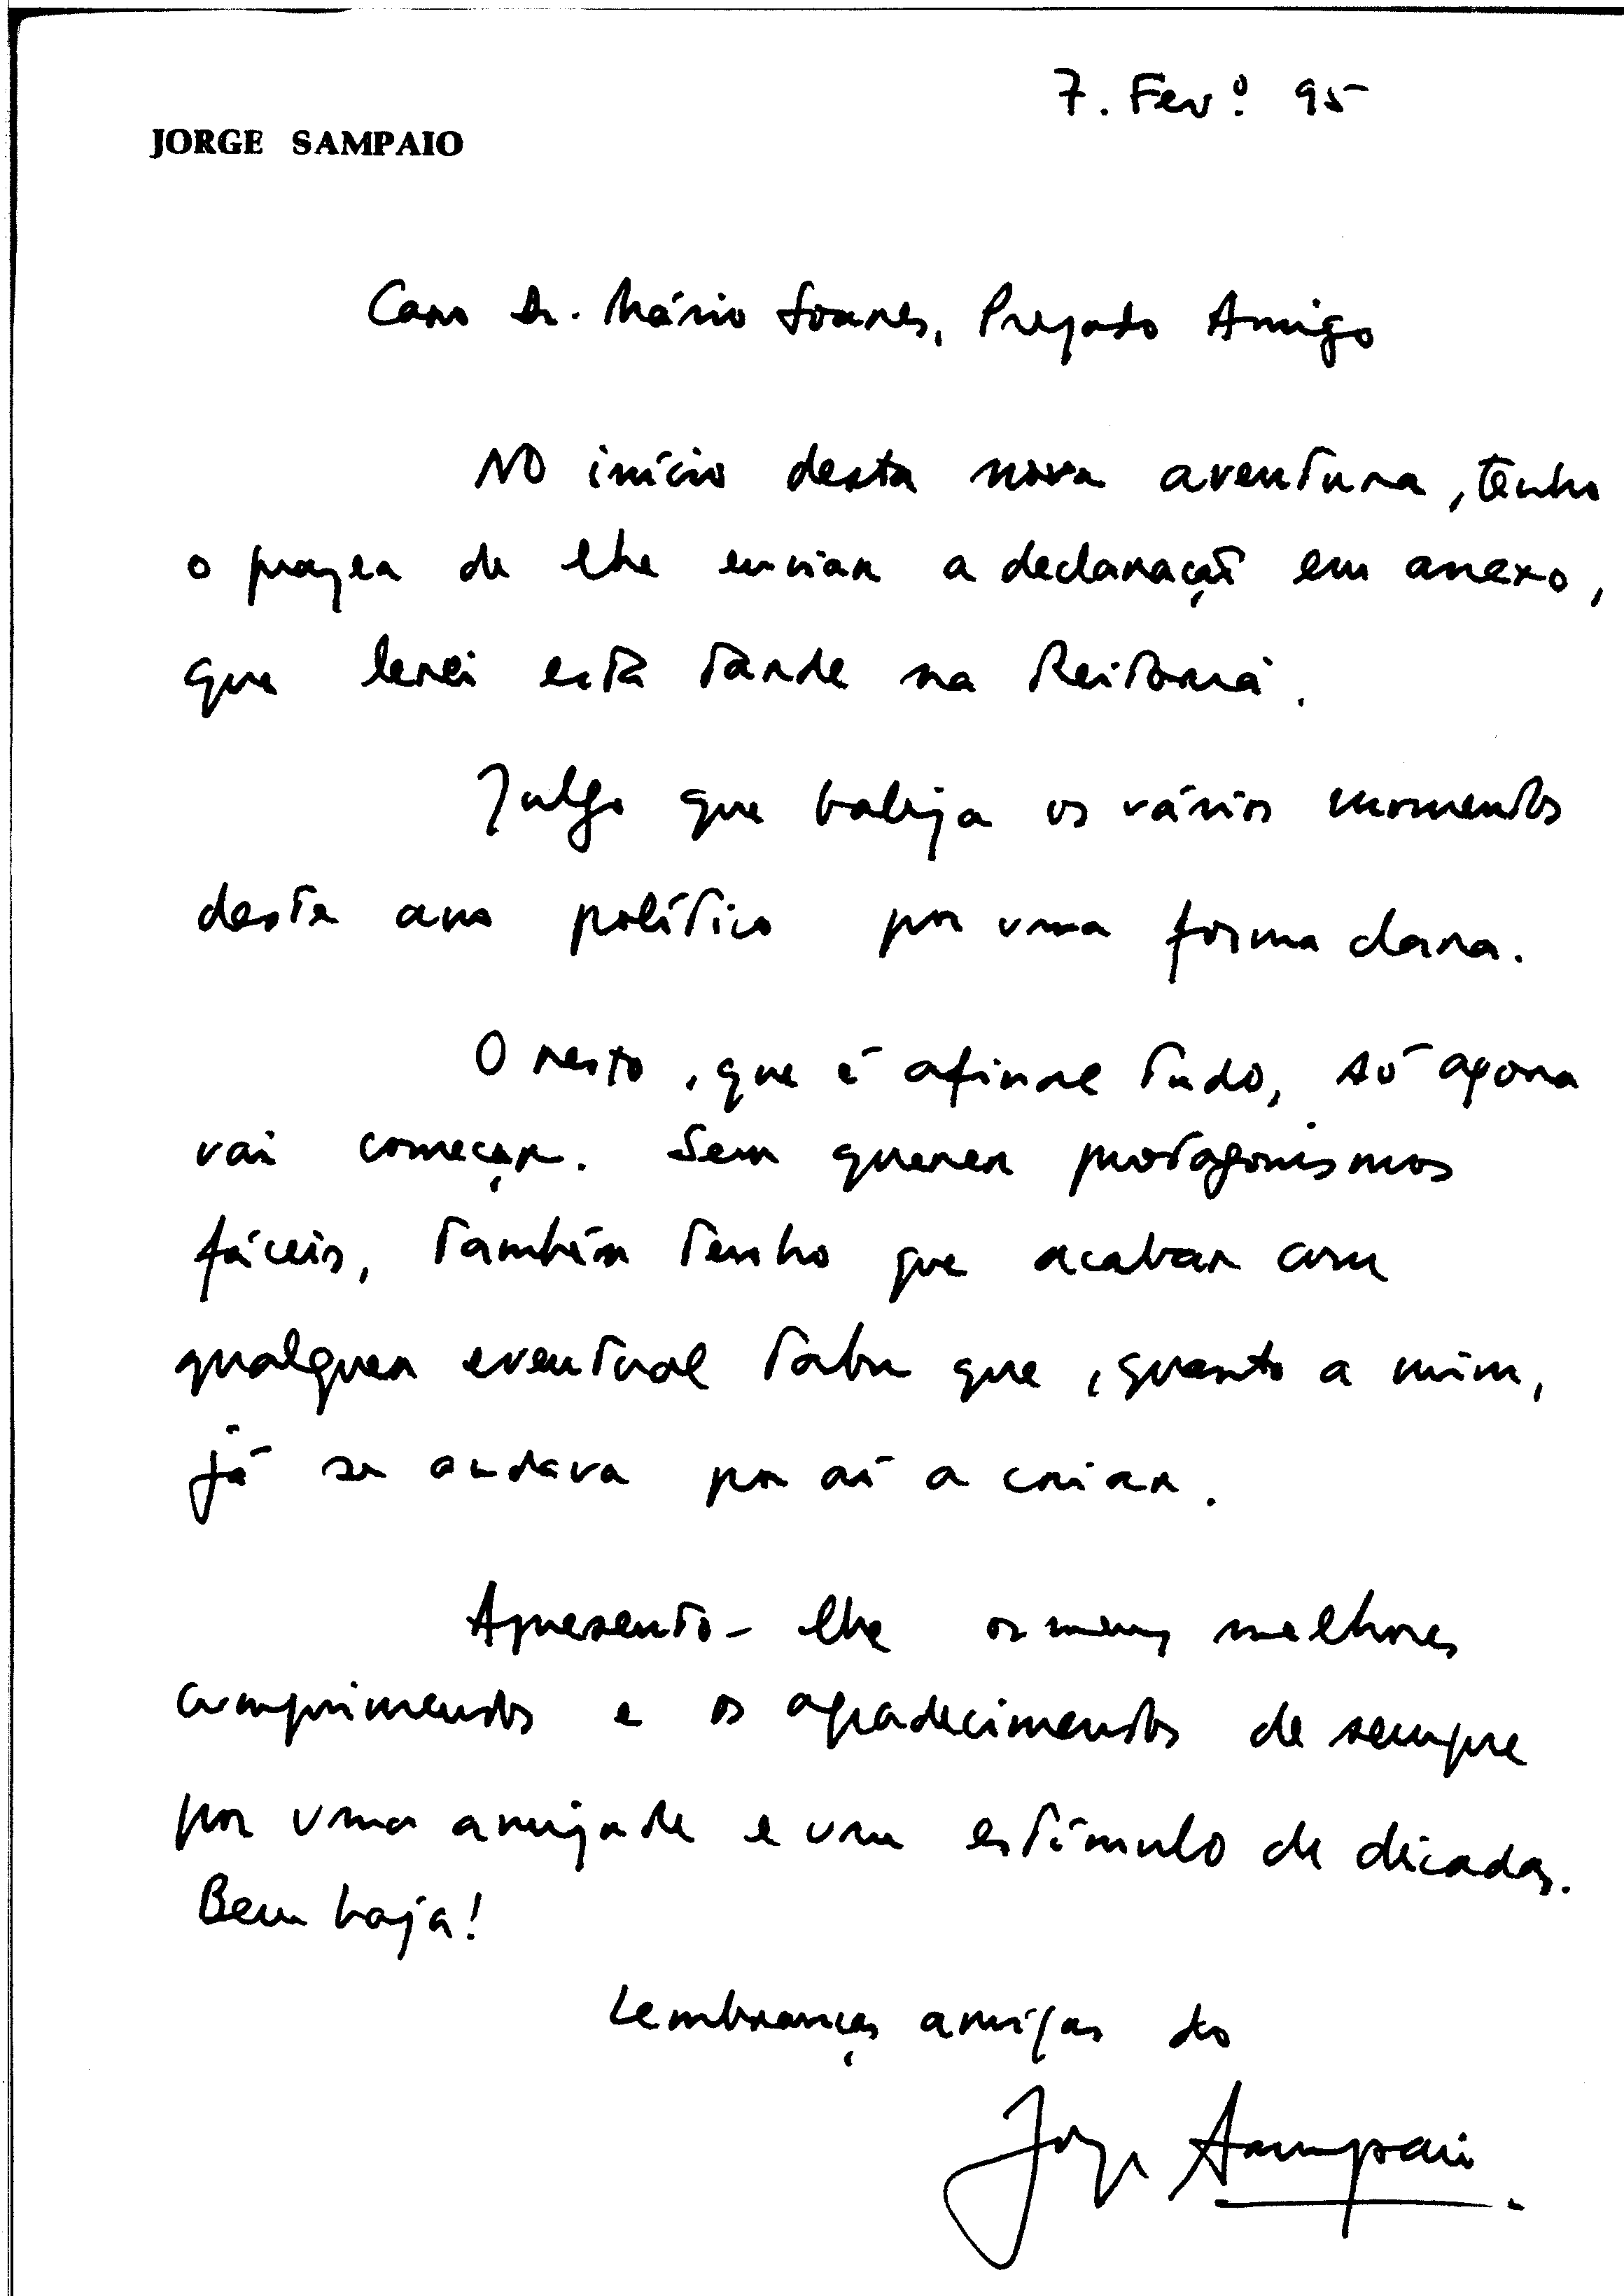 7. Fev.º 95
JORGE SAMPAIO
Caro Dr. Mário Soares, Prezado Amigo
No início desta nova aventura, tenho
o prazer de lhe enviar a declaração em anexo,
que lerei esta tarde na Reitoria.
Julgo que baliza os vários momentos
deste ano político por uma forma clara.
O resto, que é afinal tudo, só agora
vai começar. Sem querer protagonismos
fáceis, também tenho que acabar com
qualquer eventual tabu que, quanto a mim,
já se andava por aí a criar.
Apresento-lhe os meus melhores
cumprimentos e os agradecimentos de sempre
por uma amizade e um estímulo de décadas.
Bem haja!
Lembranças amigas do
Jorge Sampaio